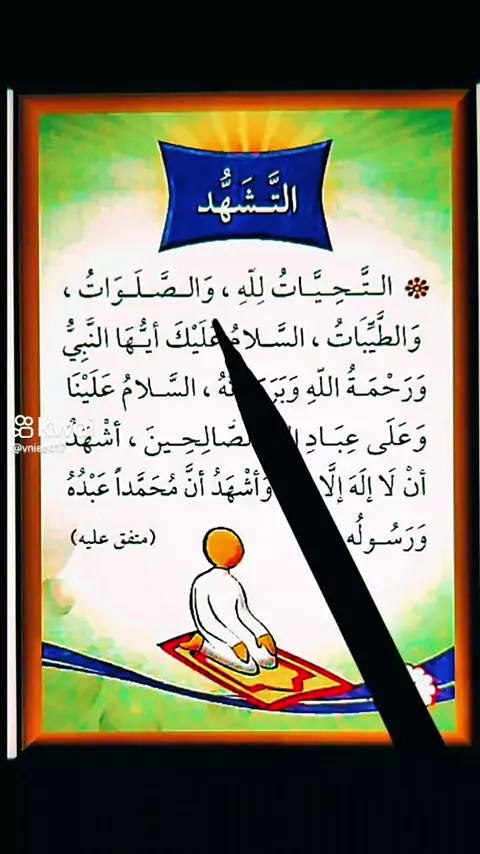 التَّشَهُّد
التَّحِيَّاتُ لِلَّهِ ، وَالصَّلَوَاتُ ،
وَالطَّيِّبَاتُ ، السَّلامُ عَلَيْكَ أَيُّهَا النَّبِيُّ
وَرَحْمَةُ اللَّهِ ، السَّلامُ عَلَيْنَا
وَعَلَى عِبَادِ الصَّالِحِينَ ، أَشْهَدُ
أَنْ لَا إِلَهَ إِلَّا وَأَشْهَدُ أَنَّ مُحَمَّداً عَبْدُهُ
وَرَسُولُه (متفق عليه)
@vnies417